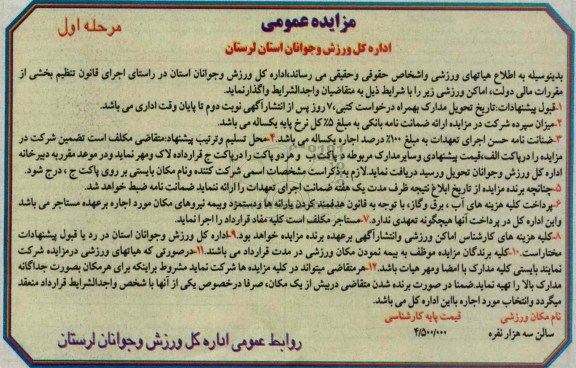 مزایده عمومی
مرحله اول
اداره کل ورزش وجوانان استان لرستان
بدینوسیله به اطلاع هیاتهای ورزشی واشخاص حقوقی وحقیقی می رساند،اداره کل ورزش وجوانان استان در راستای اجرای قانون تنظیم بخشی از
مقررات مالی دولت، اماکن ورزشی زیر را با شرایط ذیل به متقاضیان واجدالشرایط واگذارنماید.
۱-قبول پیشنهادات:تاریخ تحویل مدارک بهمراه درخواست کتبی،۷ روز پس از انتشارآگهی نوبت دوم تا پایان وقت اداری می باشد.
۲-میزان سپرده شرکت در مزایده ارائه ضمانت نامه بانکی به مبلغ ۵٪ کل نرخ پایه یکساله می باشد.
۳-ضمانت نامه حسن اجرای تعهدات به مبلغ ۱۰۰٪ درصد اجاره یکساله می باشد.۴-محل تسلیم وترتیب پیشنهاد:متقاضی مکلف است تضمین شرکت در
مزایده را درپاکت الف،قیمت پیشنهادی وسایرمدارک مربوطه درپاکت ب وهردو پاکت را درپاکت ج قرارداده لاک ومهر نماید ودر موعد مقرربه دبیرخانه
اداره کل ورزش وجوانان تحویل ورسید دریافت نماید.لازم به ذکراست مشخصات اسمی شرکت کننده ونام مکان بایستی بر روی پاکت ج ، درج شود.
۵-چنانچه برنده مزایده از تاریخ ابلاغ نتیجه ظرف مدت یک هفته ضمانت اجرای تعهدات را ارائه ننماید ضمانت نامه ضبط خواهد شد.
۶-پرداخت کلیه هزینه های آب ، برق وگاز، با توجه به قانون هدفمند کردن یارانه ها ودستمزد وبیمه نیروهای مکان مورد اجاره برعهده مستاجر می باشد
واین اداره کل در پرداخت آنها هیچگونه تعهدی ندارد.۷-مستاجر مکلف است کلیه مفاد قرارداد را اجرا نماید.
۸-کلیه هزینه های کارشناس اماکن ورزشی وانتشارآگهی برعهده برنده مزایده خواهد بود.۹-اداره کل ورزش وجوانان استان در رد یا قبول پیشنهادات
مختاراست.۱۰-کلیه برندگان مزایده موظف به بیمه نمودن مکان ورزشی در مدت قرارداد می باشند.۱۱-درصورتی که هیاتهای ورزشی درمزایده شرکت
نمایند بایستی کلیه مدارک با امضا ومهر هیات باشد.۱۲-هرمتقاضی میتواند در کلیه مزایده ها شرکت نماید مشروط براینکه برای هرمکان بصورت جداگانه
مدارک بالا را تهیه نماید.ضمنا در صورت برنده شدن متقاضی دربیش از یک مکان، صرفا درخصوص یکی از آنها با شخص واجدالشرایط قرارداد منعقد
میگردد وانتخاب مورد اجاره بااین اداره کل می باشد.
نام مکان ورزشی قیمت پایه کارشناسی
سالن سه هزار نفره ۴/۵۰۰/۰۰۰
روابط عمومی اداره کل ورزش وجوانان لرستان